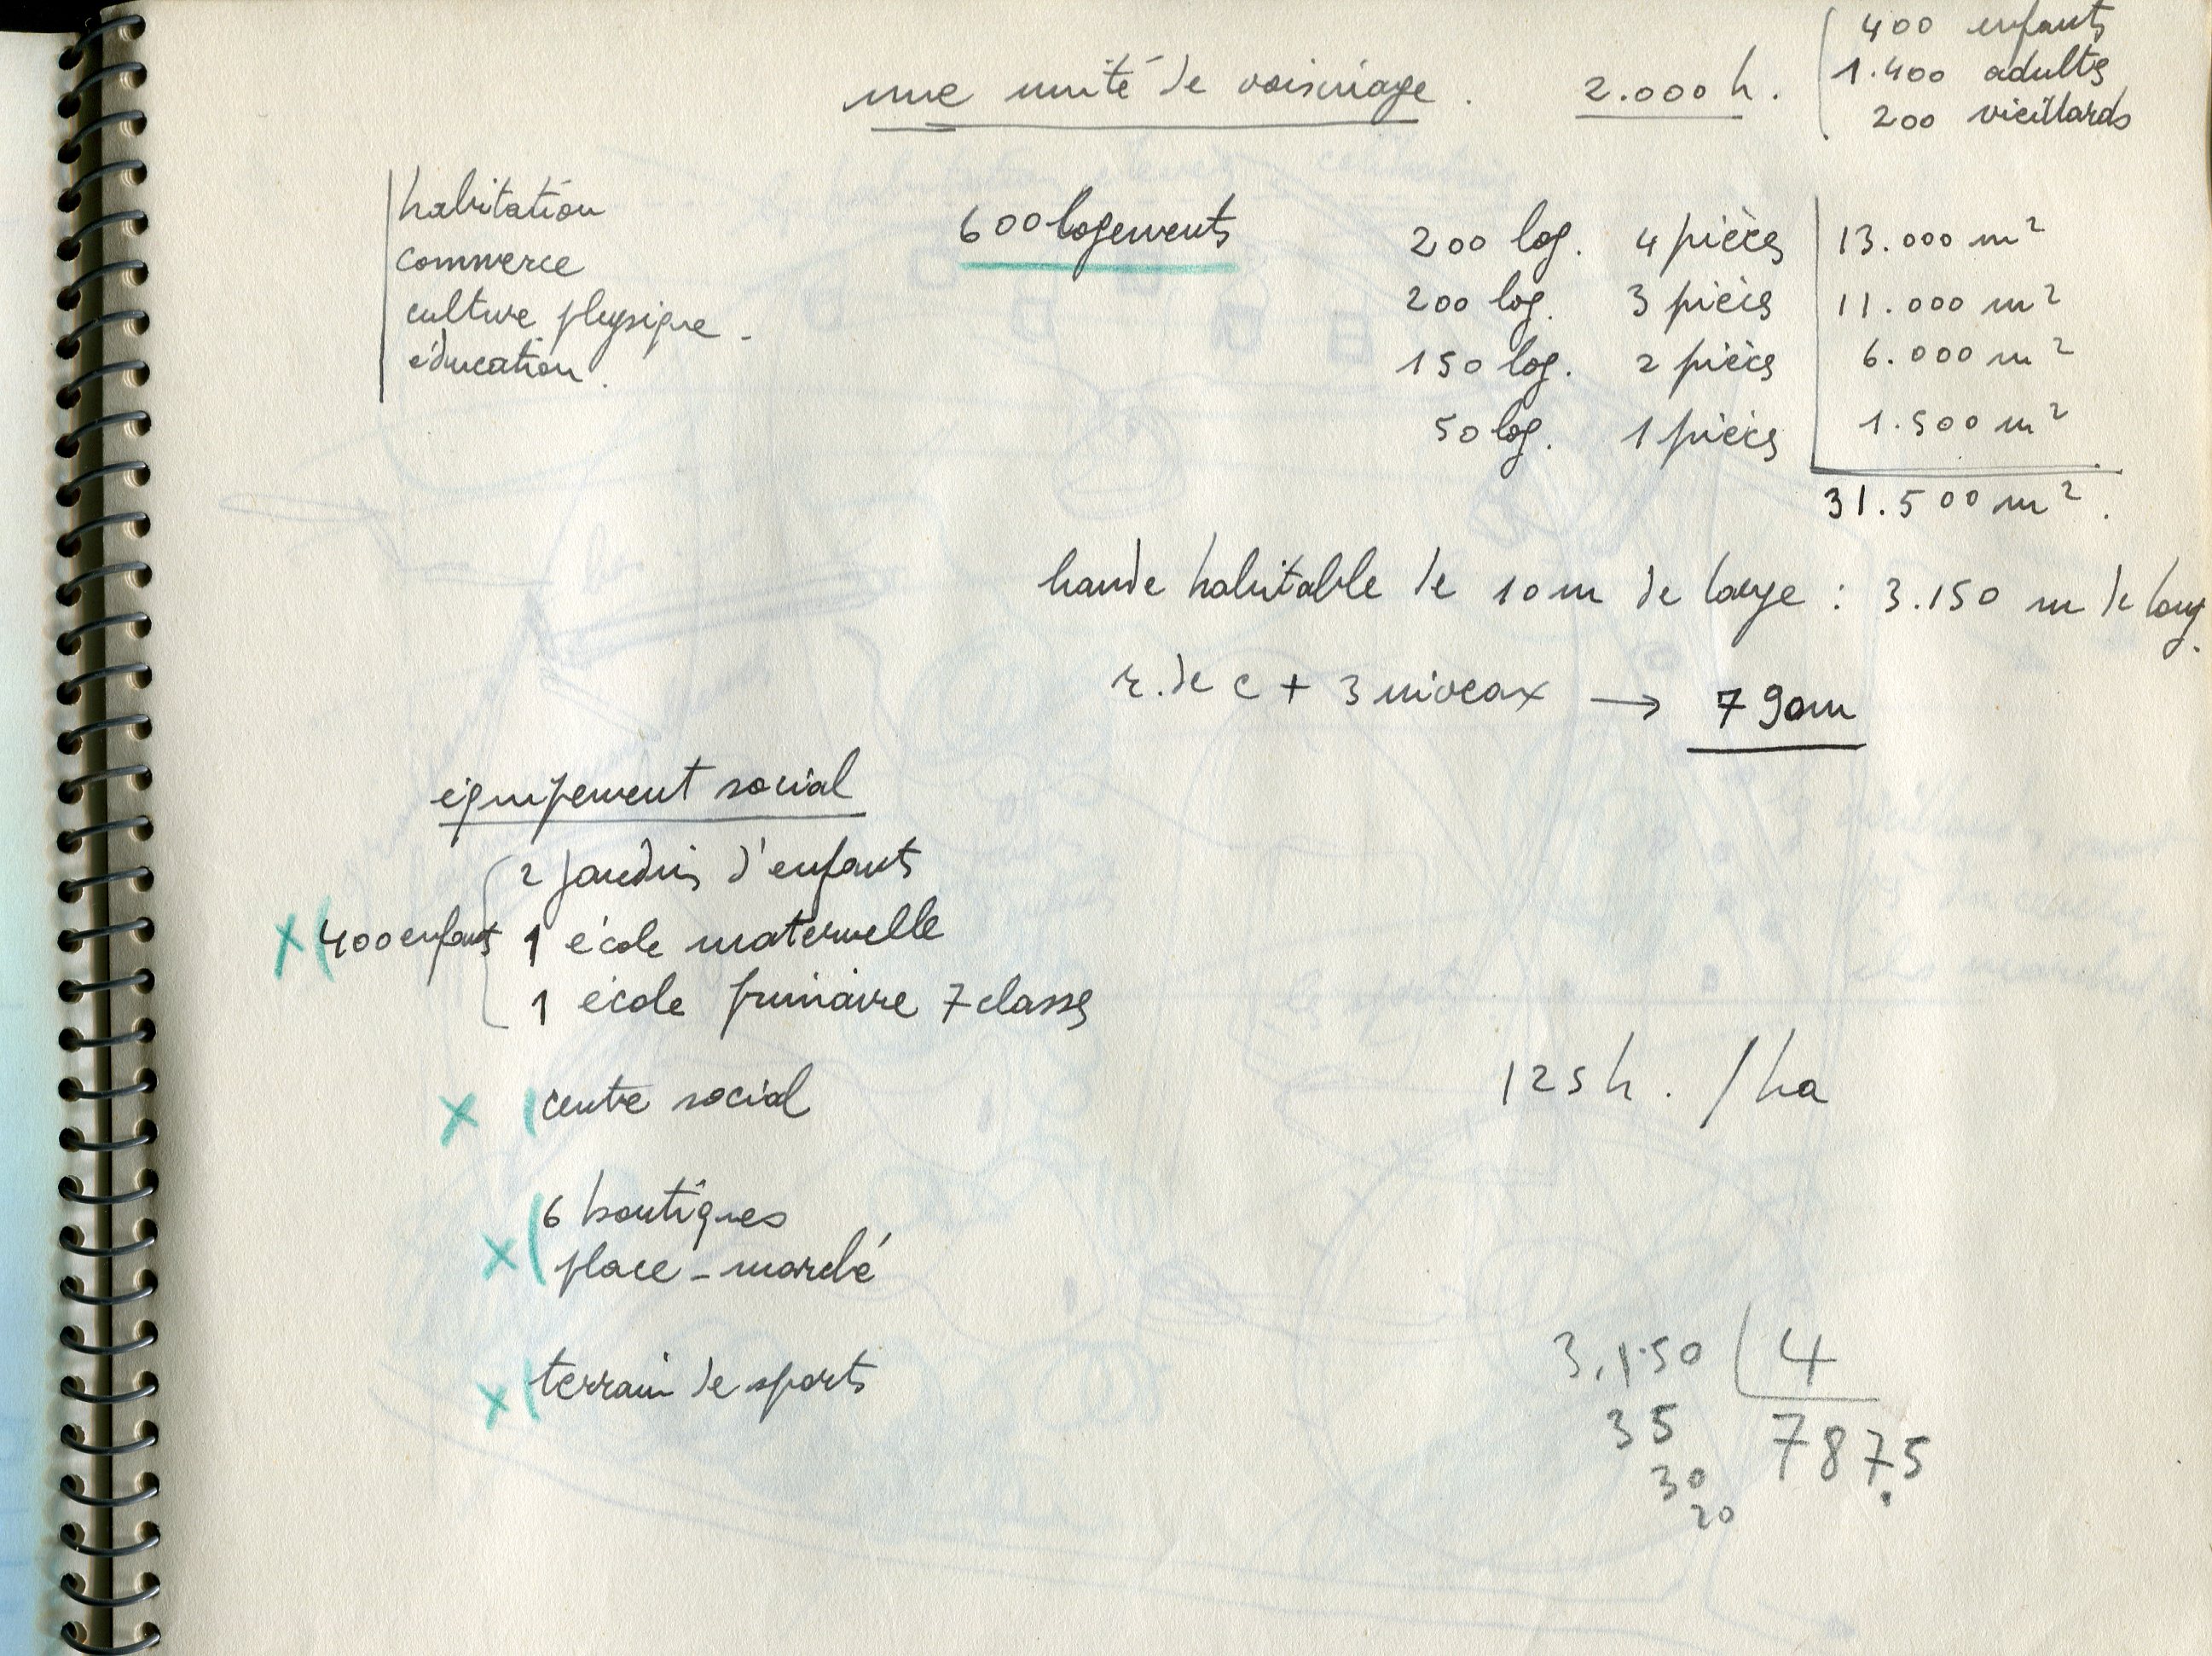 400 enfants
une unité de voisinage. 2.000 h. 1.400 adultes
200 vieillards
habitation
commerce
culture physique.
éducation.
600 logements
200 log. 4 pièces 13.000 m²
200 log. 3 pièces 11.000 m²
150 log. 2 pièces 6.000 m²
50 log. 1 pièces 1.500 m²
31.500 m².
bande habitable de 10 m de large : 3.150 m de long.
r. de c + 3 niveaux → 790m
équipement social
2 jardins d'enfants
400 enfants 1 école maternelle
1 école primaire 7 classes
centre social
125 h. / ha
6 boutiques
place - marché
terrain de sports
3,150 4
35 787,5
30
20